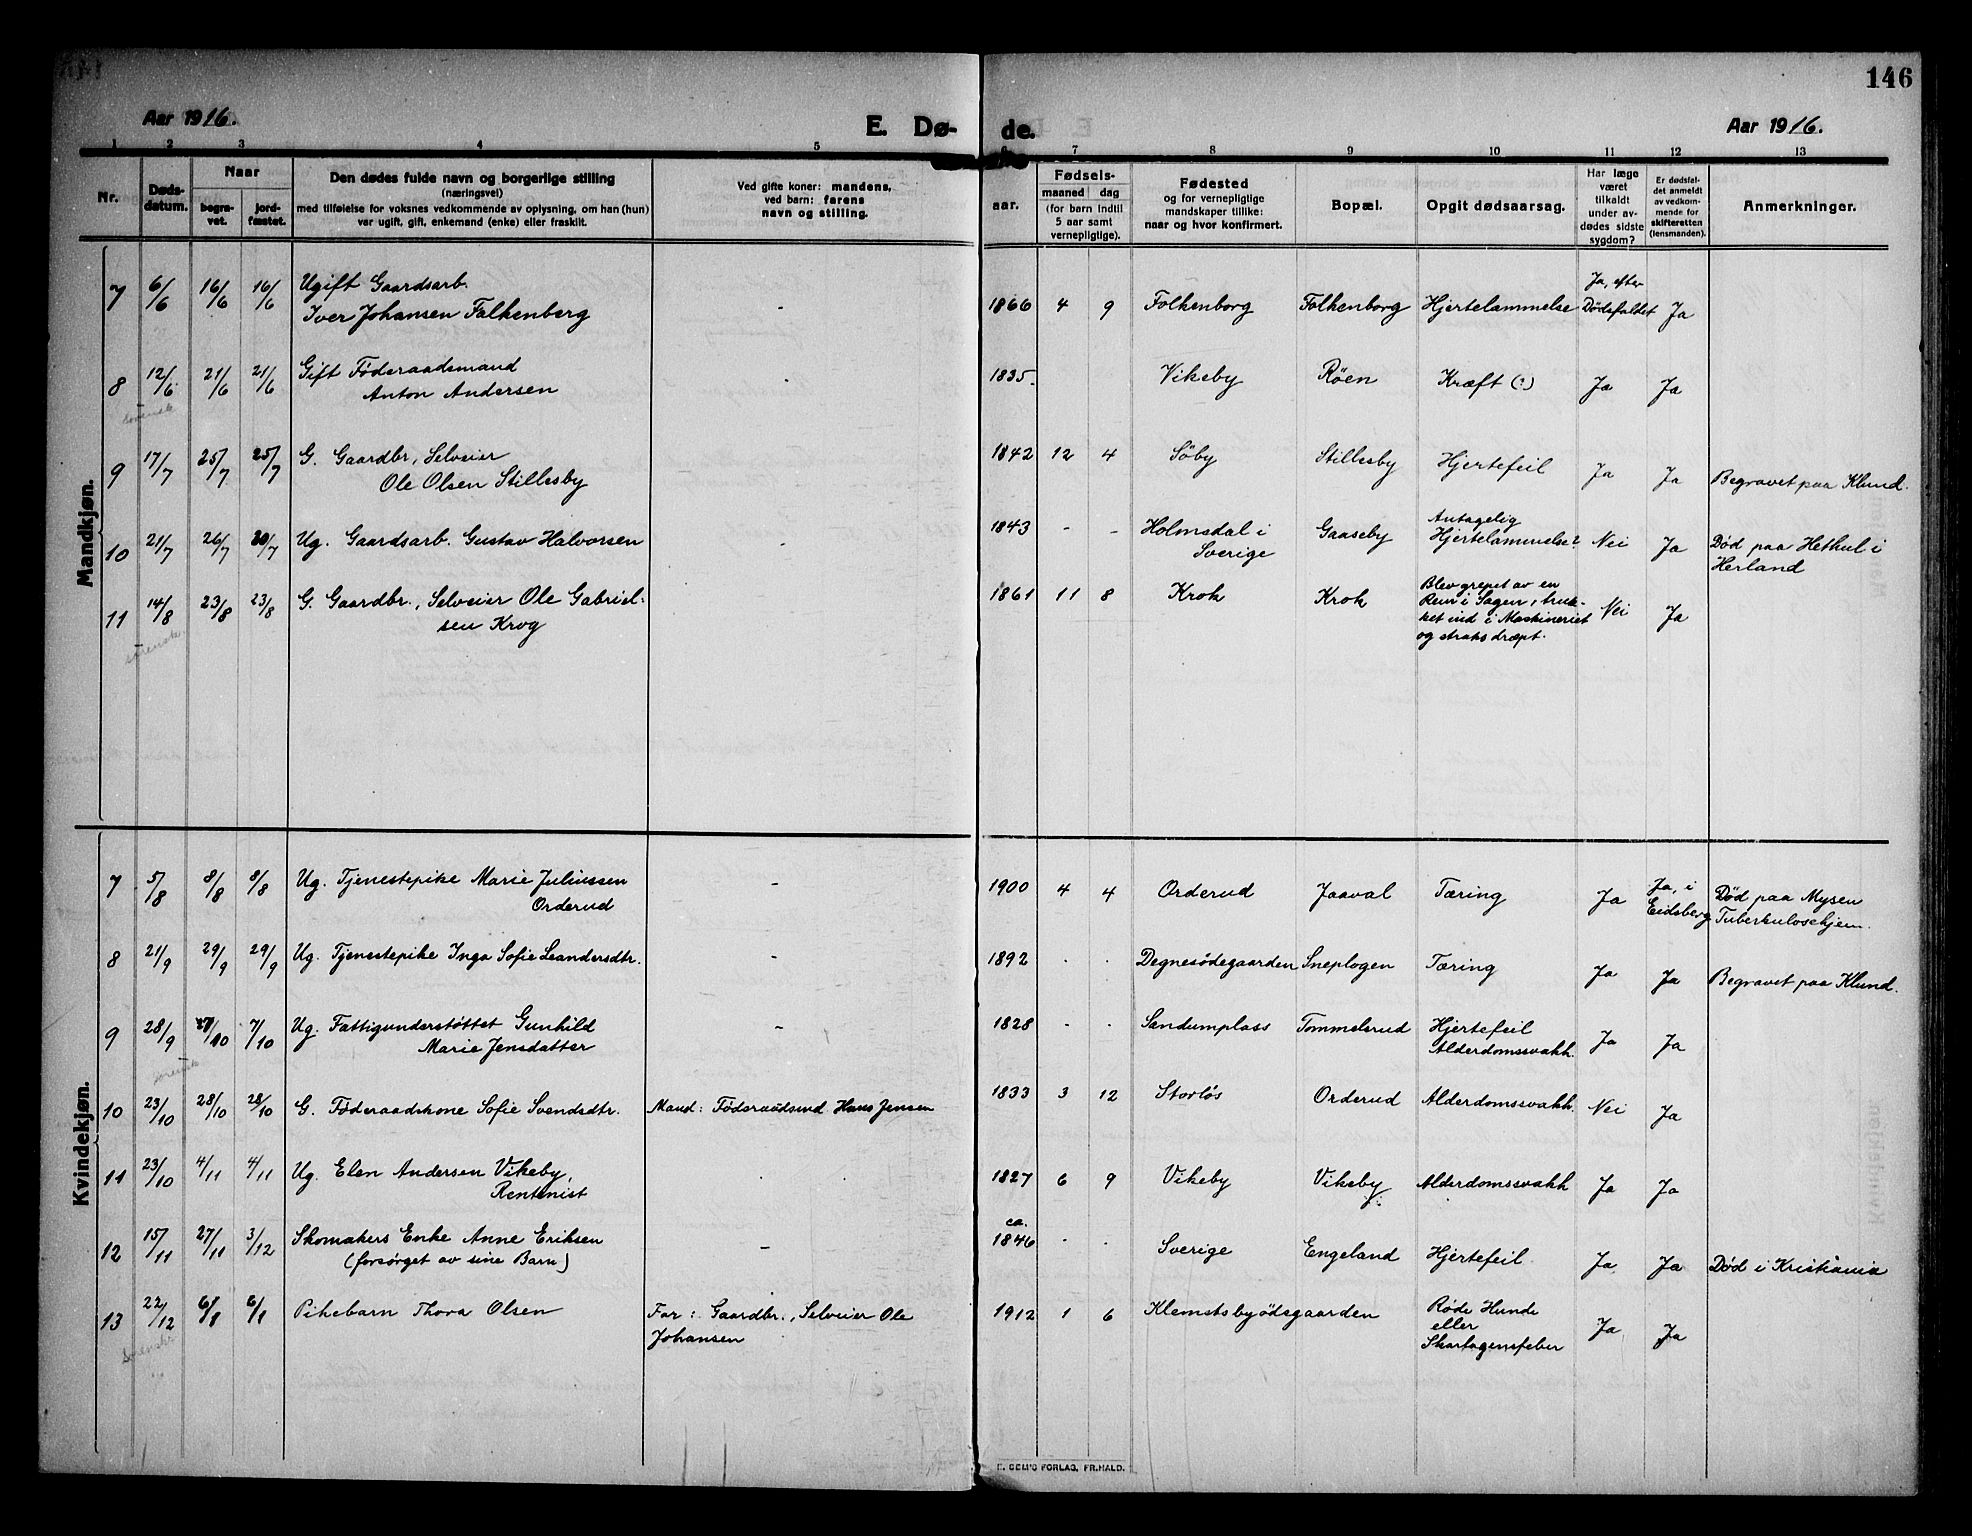 146
Aar 1916.
E. Dø-
de.
Aar 1916.
1 2 3 4 5 6 7 8 9 10 11 12 13
Nr.
Døds-
datum.
Naar
begra-
vet.
jord-
fæstet.
Den dødes fulde navn og borgerlige stilling
(næringsvei)
med tilføielse for voksnes vedkommende av oplysning, om han (hun)
var ugift, gift, enkemand (enke) eller fraskilt.
Ved gifte koner: mandens,
ved barn: farens
navn og stilling.
Fødsels-
aar.
maaned
dag
(for barn indtil
5 aar samt
vernepligtige).
Fødested
og for vernepligtige
mandskaper tillike:
naar og hvor konfirmert.
Bopæl.
Opgit dødsaarsag.
Har læge
været
tilkaldt
under av-
dødes sidste
sygdom?
Er dødsfal-
det anmeldt
av vedkom-
mende for
skifteretten
(lensmanden).
Anmerkninger.
Mandkjøn.
7 6/6 16/6 16/6 Ugift Gaardsarb.
Iver Johansen Falkenberg - 1866 4 9 Folkenborg Folkenborg Hjertelammelse Ja, efter
Dødsfaldet Ja
8 12/6 21/6 21/6 Gift Føderaadsmand
Anton Andersen - 1835. Vikeby Røen Kræft (?) Ja Ja
9 17/7 25/7 25/7 G. Gaardbr., Selveier
Ole Olsen Stillesby 1842 12 4 Söby Stillesby Hjertefeil Ja Ja Begravet paa Klund.
10 21/7 26/7 20/7 Ug. Gaardsarb. Gustav Halvorsen - 1843 - - Holmsdal i
Sverige Gaaseby Antagelig
Hjertelammelse? Nei Ja Død paa Hethul i
Herland
11 14/8 23/8 23/8 G. Gaardbr., Selveier Ole Gabriel-
sen Krog 1861 11 8 Krok Krok Blev grepet av en
Rem i Sagen, truk-
ket ind i Maskineriet
og straks dræpt. Nei Ja
Kvindekjøn.
7 5/8 8/8 8/8 Ug. Tjenestepike Marie Juliussen
Orderud - 1900 4 4 Orderud Jaaval Tæring Ja Ja, i
Eidsberg Død paa Mysen
Tuberkuloschjem.
8 21/9 29/9 29/9 Ug. Tjenestepike Inga Sofie Leandersdtr. - 1892 . . Degnesödegaarden Sneplogen Tæring Ja Ja Begravet paa Klund.
9 28/9 7/10 7/10 Ug. Fattigunderstøttet Gunhild
Marie Jensdatter - 1828 - . Sandumplass Tommelsrud Hjertefeil
Alderdomssvakh. Ja Ja
10 23/10 28/10 28/10 G. Føderaadskone Sofie Svendsdtr. Mand: Føderaadsmd. Hans Jensen 1833 3 12 Storlös Orderud Alderdomssvakh. Nei Ja
11 23/10 4/11 4/11 Ug. Elen Andersen Vikeby,
Rentenist 1827 6 9 Vikeby Vikeby Alderdomssvakh Ja Ja
12 15/11 27/11 3/12 Skomakers Enke Anne Eriksen
(forsørget av sine Barn) - ca.
1846 . . Sverige Engeland Hjertefeil Ja Ja Død i Kristiania
13 22/12 6/1 6/1 Pikebarn Thora Olsen Far: Gaardbr., Selveier Ole
Johansen 1912 1 6 Klemetsbyødegaarden Røde Hunde
eller
Skarlagensfeber Ja Ja
FORLAG, FR.HALD.